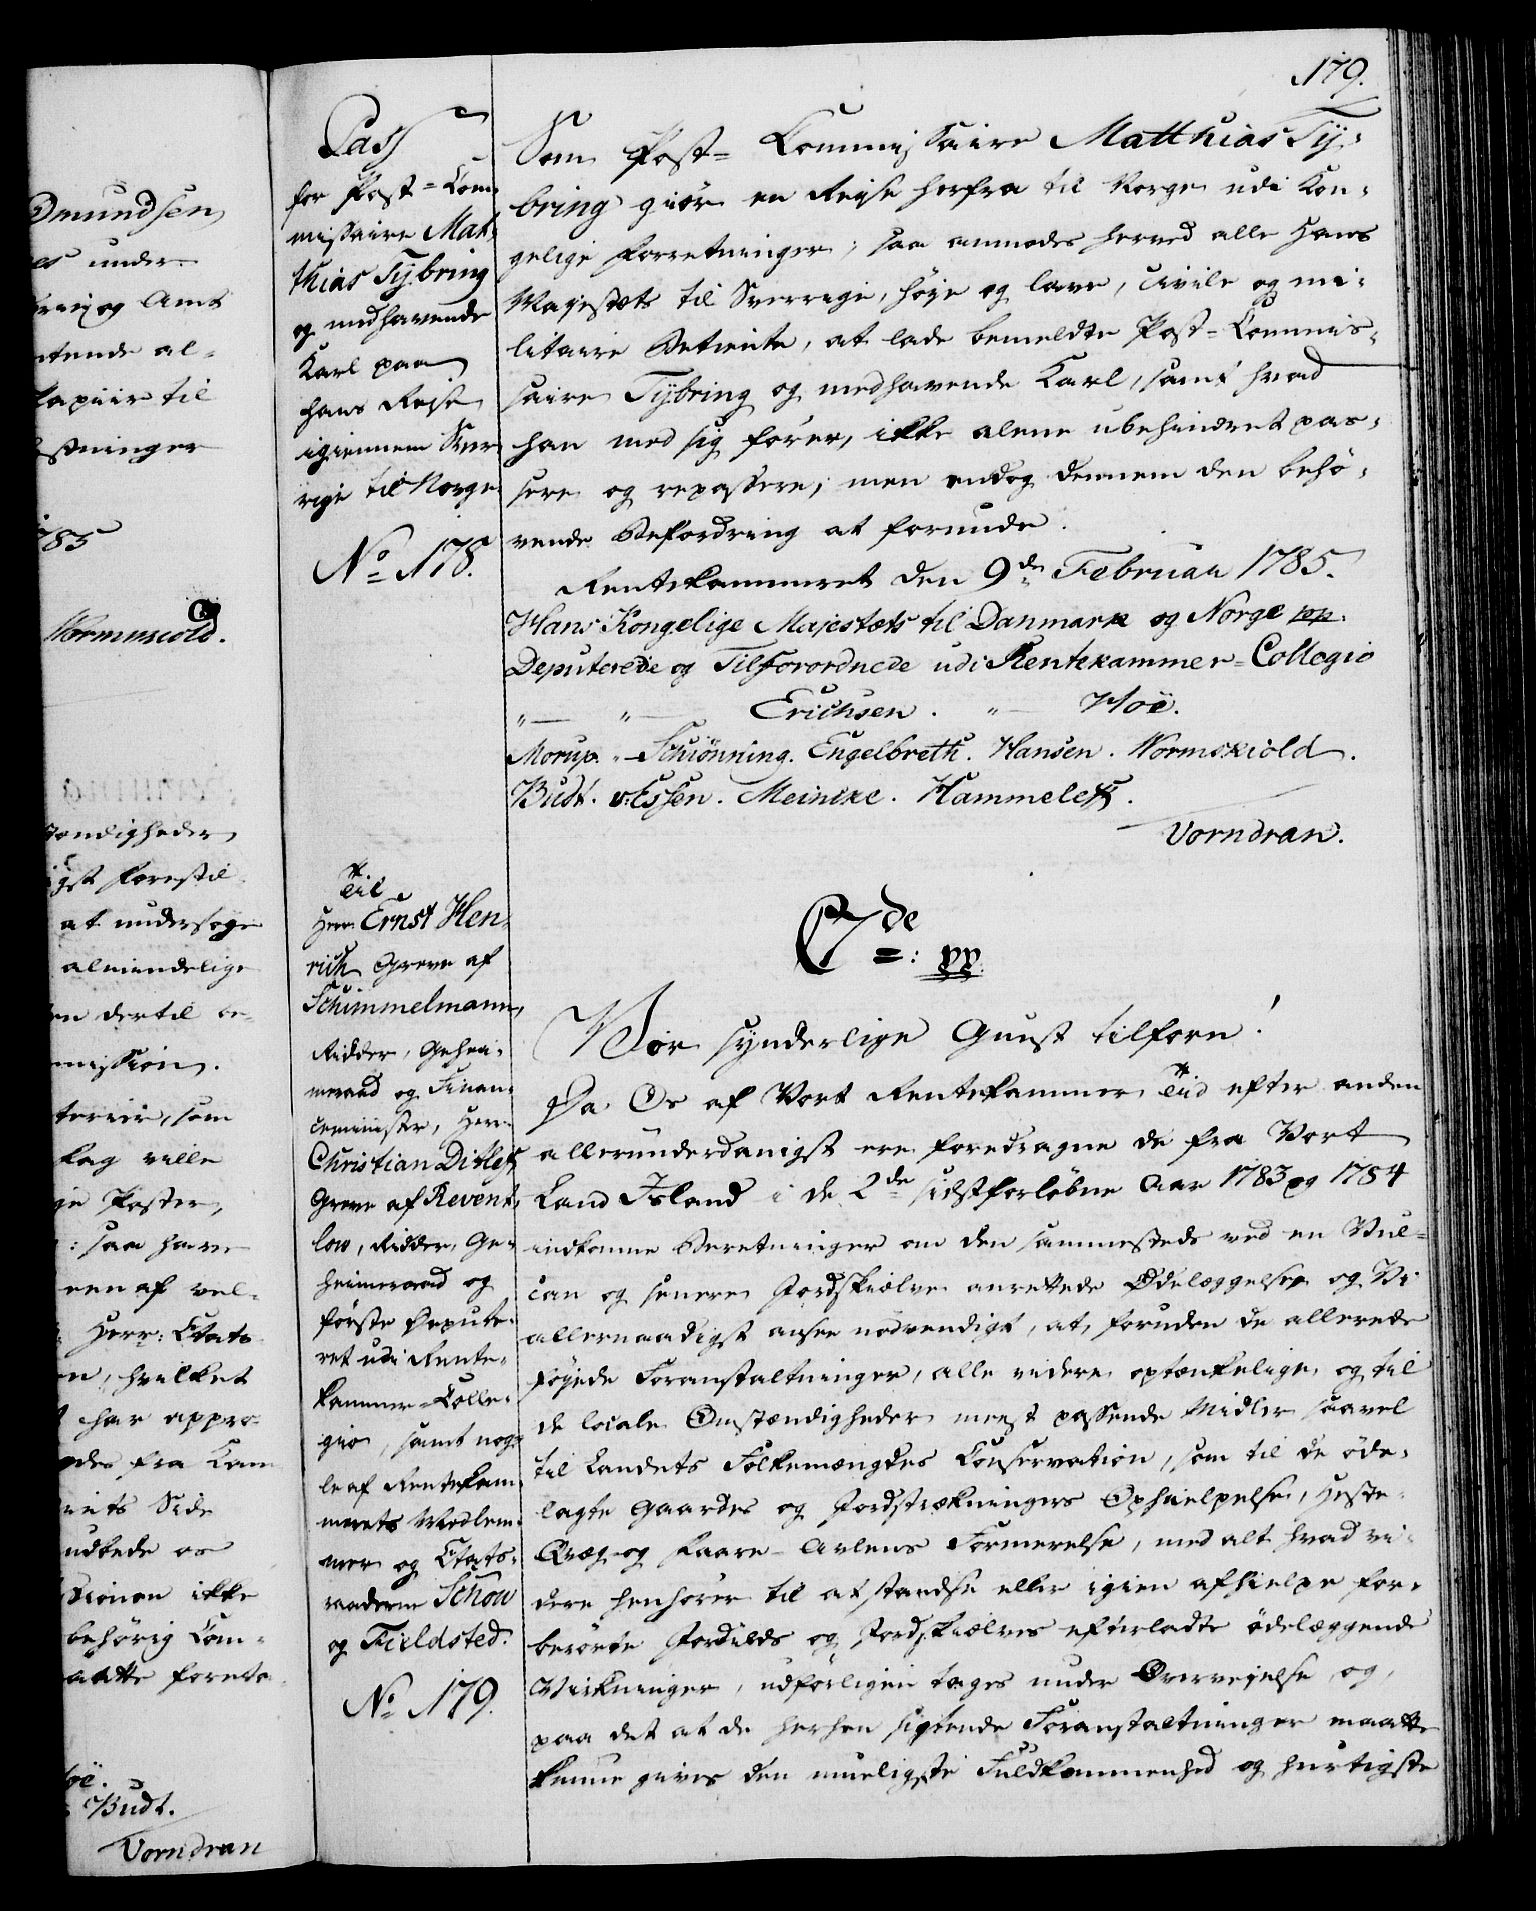 179.
Pass
for Post-Com-
missaire Mat-
thias Tybring
og medhavende
Karl paa
hans Reise
igiennem Sver-
rige til Norge
No 178.
Som Post-Commissaire Matthias Ty-
bring giör en Rejse herfra til Norge udi Kon-
gelige Forretninger, saa anmodes herved alle Hans
Majestæts til Sverrige, höje og lave, civile og mi-
litaire Betiente, at lade bemeldte Post-Commis-
saire Tybring og medhavende Karl, samt hvad
han med sig förer, ikke alene ubehindret pas-
sere og repassere, men endog dennem den behö-
vende Befordring at forunde.
Rentekammeret den 9de Februar 1785.
Hans Kongelige Majestæts til Danmark og Norge pp.
Deputerede og Tilforordnede udi Rentekammer-Collegio
" — " — Erichsen. " — Hoë.
Morup. " Schiönning. Engelbreth. Hansen. Wormskiold.
Budt. v. Essen. Meincke. Hammeleff.
Vorndran.
Til
Herr Ernst Hen-
rich Greve af
Schimmelmann,
Ridder, Gehei-
meraad og Finan-
ceminister, Herr
Christian Ditlef
Greve af Revent-
low, Ridder, Ge-
heimeraad og
förste Depute-
ret udi Rente-
kammer-Colle-
gio, samt nog-
le af Rentekam-
merets Medlem-
mer og Etats-
raaderne Schow
og Fieldsted.
No 179.
C7de: pp.
Vor synderlige Gunst tilforn!
Da Os af Vort Rentekammer Tiid efter anden
allerunderdanigst ere foredragne de fra Vort
Land Island i de 2de sidstforløbne Aar 1783 og 1784
indkomne Beretninger om den sammesteds ved en Vul-
can og senere Jordskielve anrettede Ødelæggelse og Vi
allernaadigst ansee nødvendigt, at, foruden de allerede
föjede Foranstaltninger, alle videre optænkelige og til
de locale Omstændigheder meest passende Midler saavel
til Landets Folkemængdes Conservation, som til de öde-
lagte Gaardes og Jordstrækningers Ophielpelse, Heste-
Qvæg- og Faare-Avlens Formerelse, med alt hvad vi-
dere henhörer til at standse eller igien afhielpe for-
berörte Jordilds og Jordskielves efterladte ödelæggende
Virkninger, udförligen tages under Overvejelse, og,
paa det at de herhen sigtende Foranstaltninger maatte
kunne gives den mueligste Fuldkommenhed og hurtigste
Omundsen
under
og Amt
al-
Papiir til
783
Wormskiold.
at undersøge
almindelige
dertil be-
mission.
som
ville
Poster,
: saa have
een af vel-
Herr: Etats-
hvilket
har appro-
fra Kam
Side
udbede os
ikke
behörig Com-
Budt.
Vorndran